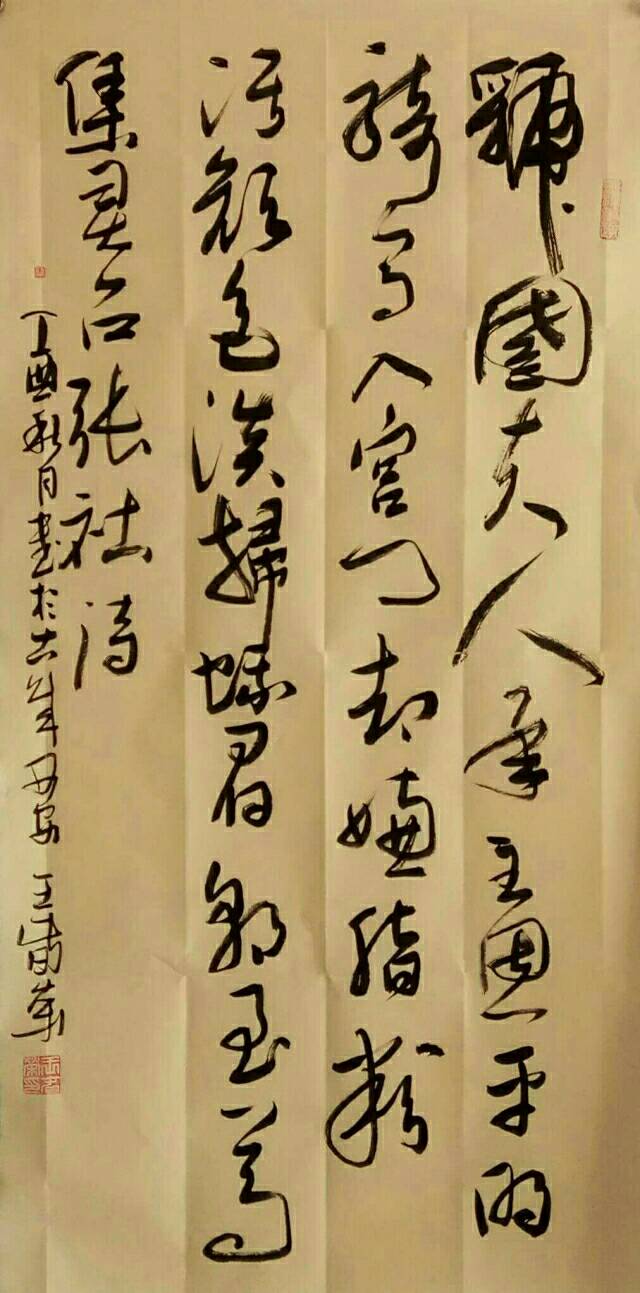 虢國夫人承主恩平明
騎馬入宮門却嫌脂粉
污顏色淡掃蛾眉朝至尊
集灵台張祜詩
丁酉秋月書於古都西安 王